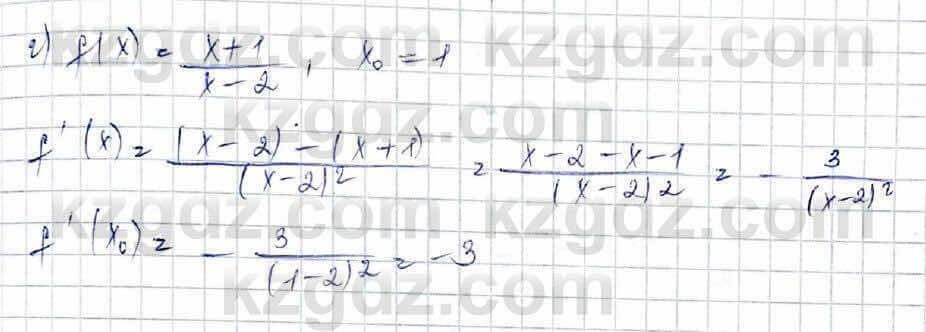 г) f(x) = (x+1)/(x-2), x₀ = 1
f'(x) = ((x-2) - (x+1))/(x-2)² = (x-2-x-1)/(x-2)² = - 3/(x-2)²
f'(x₀) = - 3/(1-2)² = -3
kzgdz.com kzgdz.com
kzgdz.com
kzgdz.com kzgdz.com
kzgdz.com